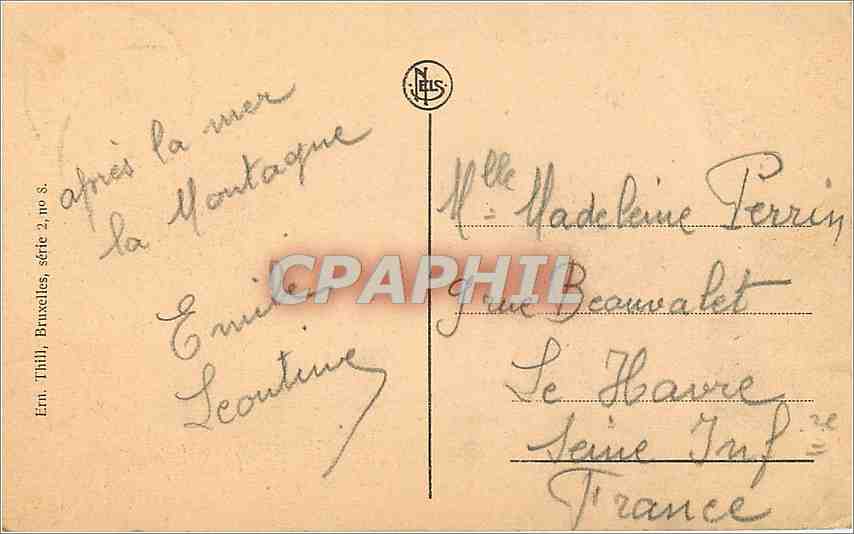 NELS
après la mer
la Montagne
Emile
Leontine
Mlle Madeleine Perrin
9 rue Beauvalet
Le Havre
Seine Infre
France
Ern. Thill, Bruxelles, série 2, no 8.
CPAPHIL